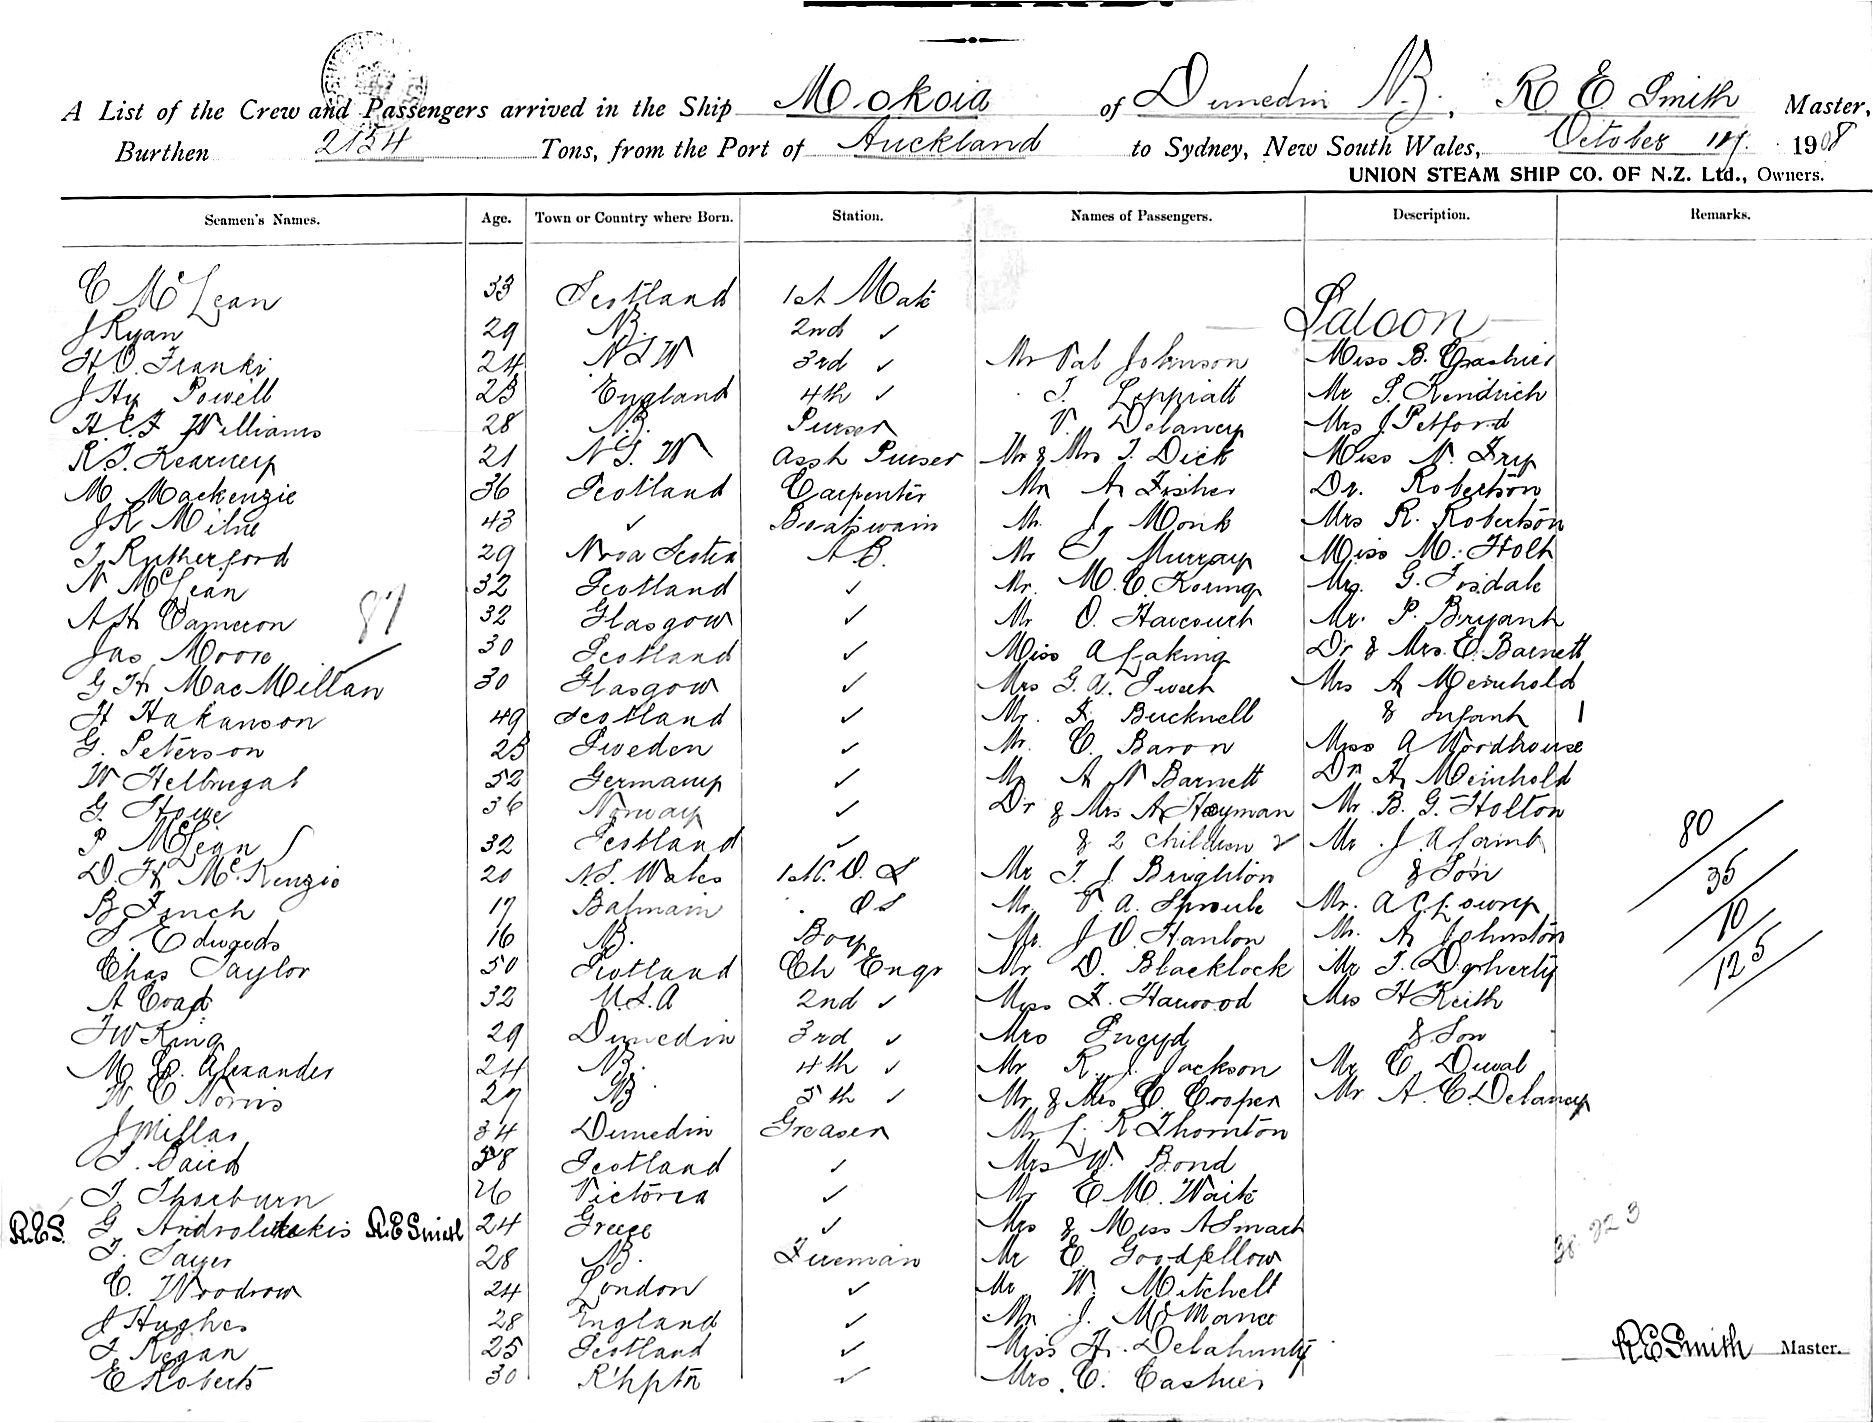 A List of the Crew and Passengers arrived in the Ship Mokoia of Dunedin N.Z., R E Smith Master,
Burthen 2154 Tons, from the Port of Auckland to Sydney, New South Wales, October 1908
UNION STEAM SHIP CO. OF N.Z. Ltd., Owners.
Seamen's Names. Age. Town or Country where Born. Station. Names of Passengers. Description. Remarks.
C McLean 33 Scotland 1st Mate
Saloon
J Ryan 29 N.Z. 2nd ✓
H O. Franki 24 N S W 3rd ✓ Mr Val Johnson Miss B. Grashier
J Hy Powell 23 England 4th ✓ T. Leppiatt Mr S. Kendrich
H. E. F Williams 28 N.Z. Purser V. Delaney Mrs J Petford
R. J. Kearney 21 N S. W Asst Purser Mr & Mrs T. Dick Miss N. Fry
M. Mackenzie 36 Scotland Carpenter Mr A Fischer Dr. Robertson
J R Milne 43 ✓ Boatswain Mr. J. Monk Mrs R. Robertson
J. Rutherford 29 Nova Scotia A.B. Mr T Murray Miss M. Holt
N McLean 32 Scotland ✓ Mr. M. C. Koring Mrs. G. Tisdale
A H Cameron 32 Glasgow ✓ Mr O. Harcourt Mr. P. Bryant
87
Jas Moore 30 Scotland ✓ Miss A Laking Dr & Mrs. E. Barnett
G H MacMillan 30 Glasgow ✓ Mrs G. A. Sweet Mrs A Meinhold
H Hakanson 49 Scotland ✓ Mr. F. Bucknell & Infant 1
G. Peterson 23 Sweden ✓ Mr. C. Baron Miss A Woodhouse
W Helbrugal 52 Germany ✓ Mr A N Barnett Dr H Meinhold
G. 36 Norway ✓ Dr & Mrs A Hayman Mr B. G. Holton
P McLean 32 Scotland ✓ & 2 children 2 Mr. J. A Lamb
80
D. H McKenzie 20 N.S. Wales O. S Mr T. J. Brighton & Son
35
B Finch 17 Balmain O S Mr. V. A. Sproule Mr. A C Lowry
10
S. Edwards 16 N.Z. Boy Mr. J O. Hanlon Mr. A Johnston
125
Chas Taylor 50 Scotland Ch Engr Mr D. Blacklock Mr T. Doherty
A Coap 32 U.S.A 2nd ✓ Miss F. Harwood Mrs H Keith
F W King 29 Dunedin 3rd ✓ Mrs & Son
M. C. Alexander 24 N.Z. 4th ✓ Mr R. J. Jackson Mr C Duval
W C Norris 29 N.Z. 5th ✓ Mr & Mrs C. Cooper Mr A. C. Delaney
J Millar 34 Dunedin Greaser Mr L. R Thornton
J. Baird 38 Scotland ✓ Mrs W. Bond
J. Thorburn 26 Victoria ✓ Mr E M. Waite
R.E.S. G R.E Smith 24 Greece ✓ Mrs & Miss A Smart
323
T. Sayer 28 N.Z. Fireman Mr E Goodfellow
C. Woodrow 24 London ✓ Mr W. Mitchell
J Hughes 28 England ✓ Mr J. McMance
J. Regan 25 Scotland ✓ Miss H. Delahunty
R E Smith Master.
E Roberts 30 R'hptn ✓ Mrs. C. Cashier